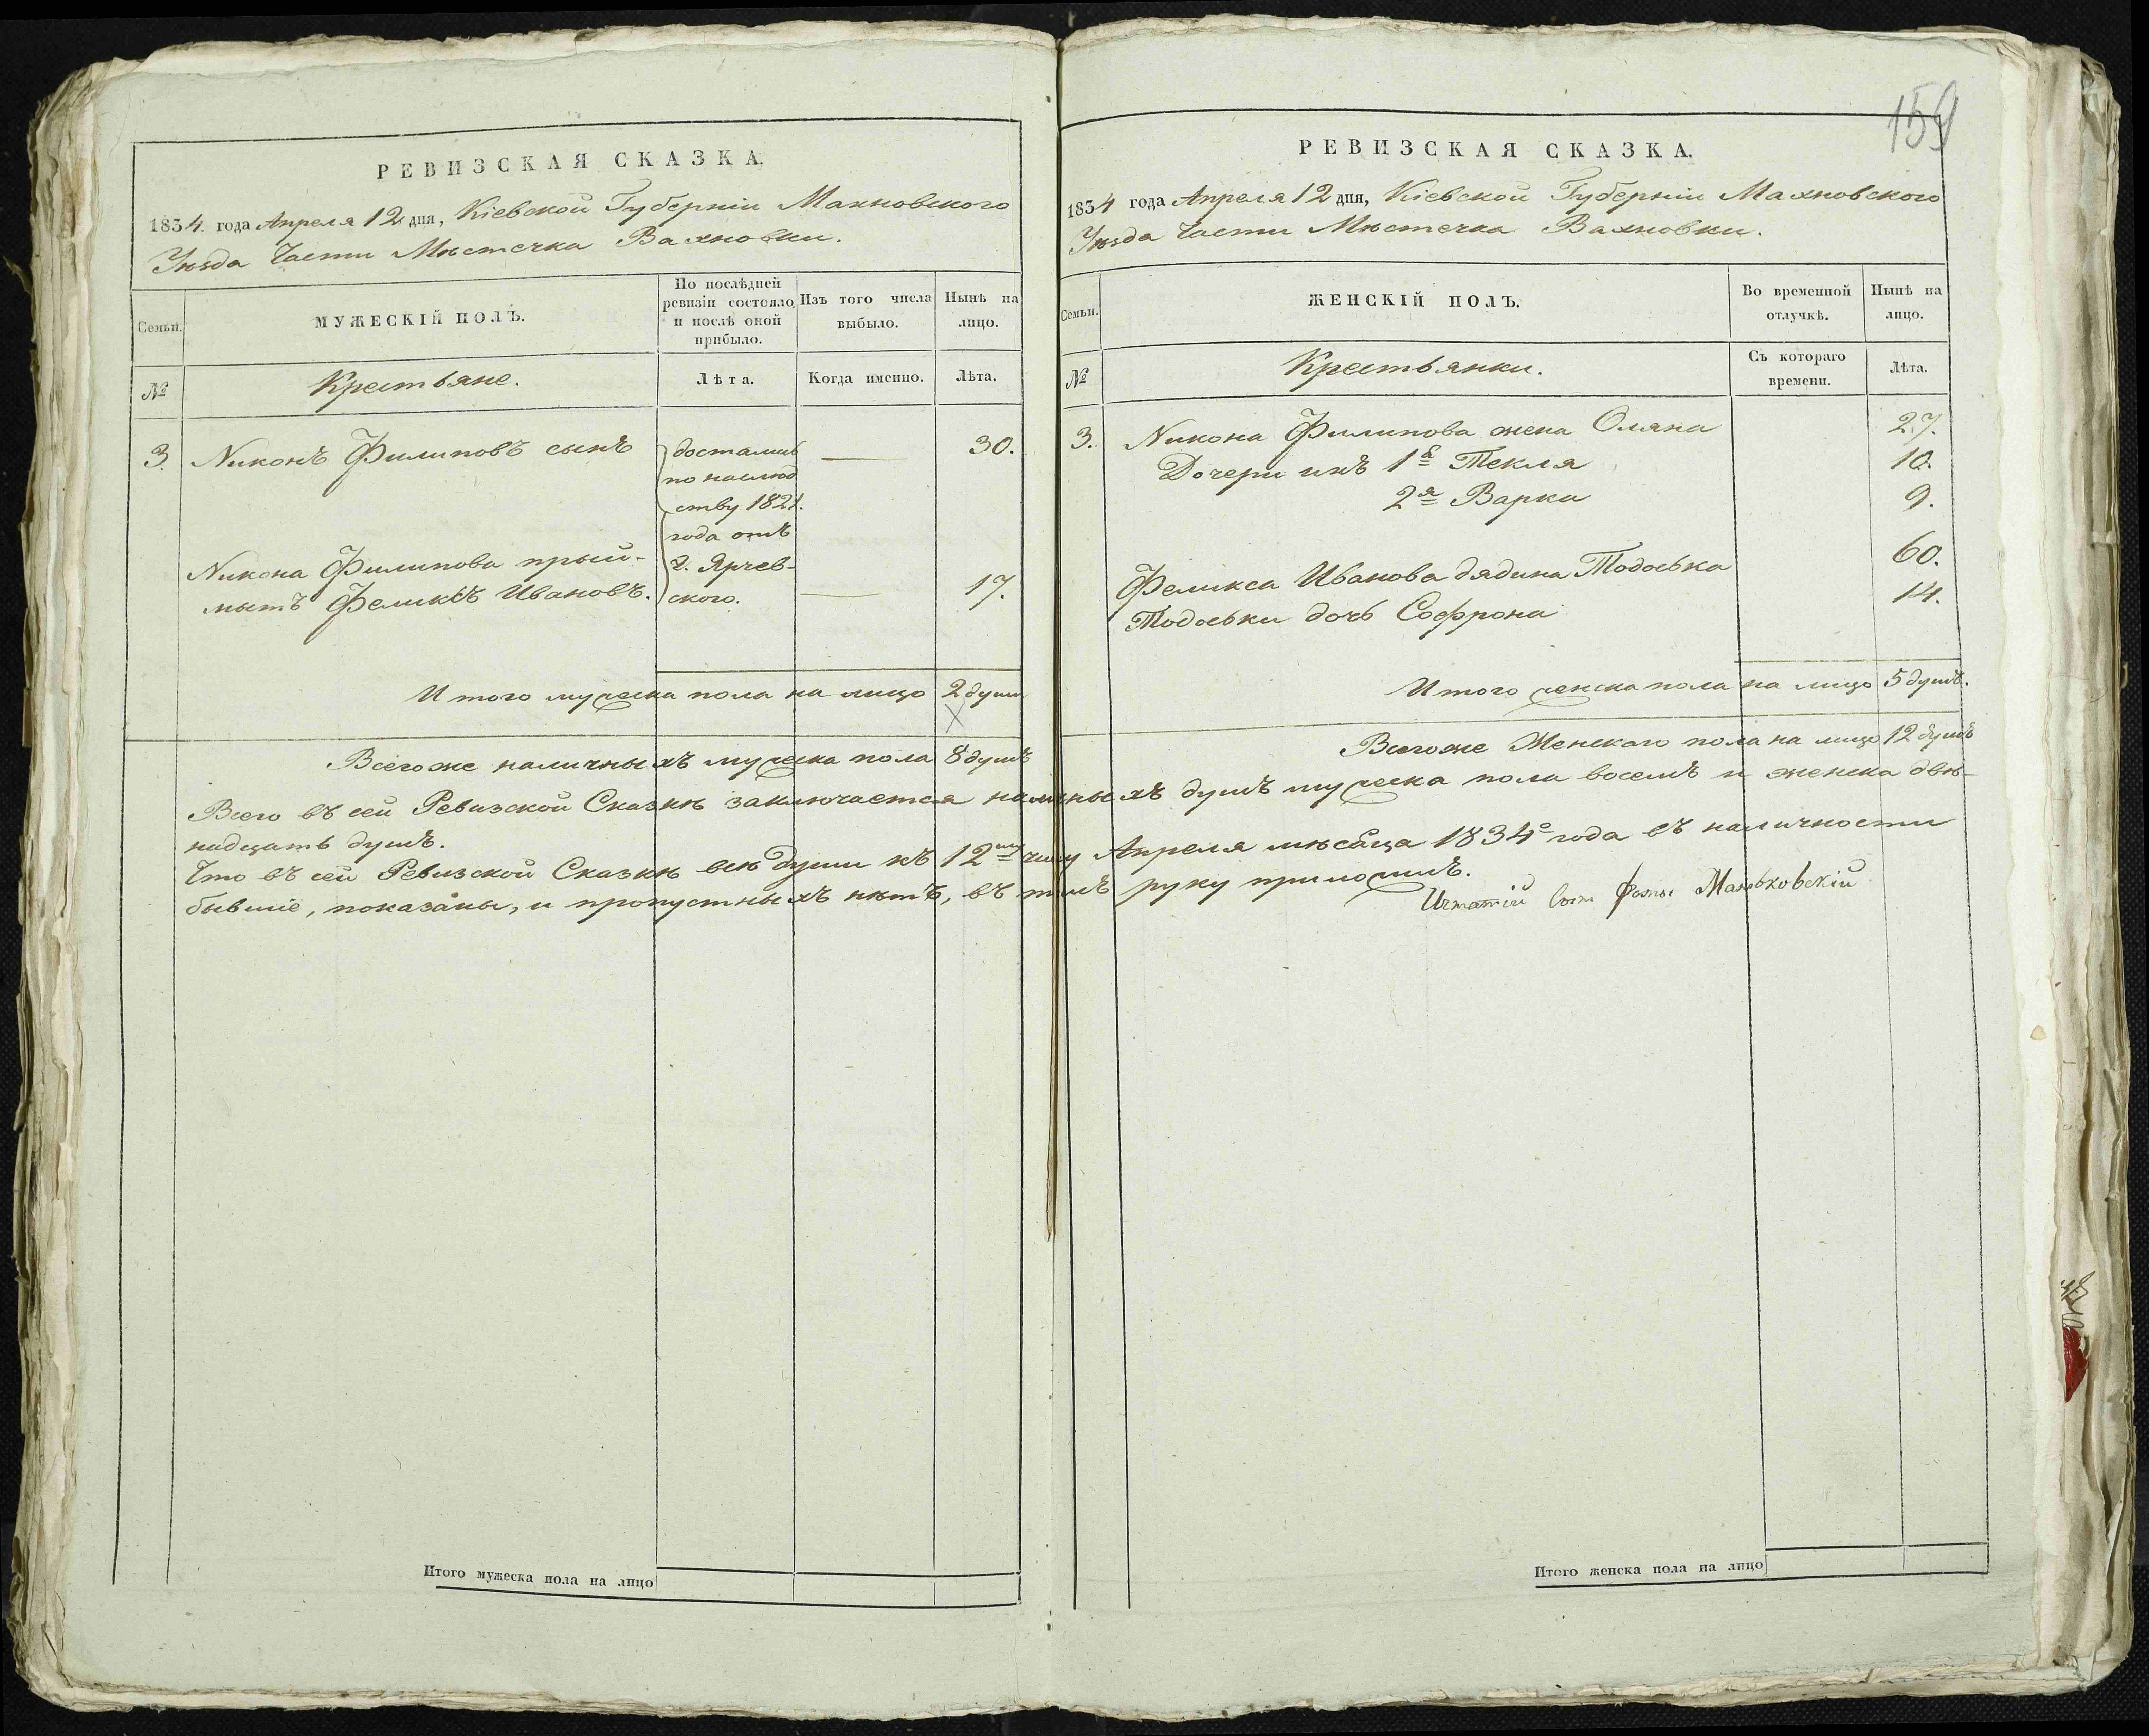 159
РЕВИЗСКАЯ СКАЗКА.
1834. года Апреля 12 дня, Кіевской Губерніи Махновского
Уѣзда Части Мѣстечка Вахновки.
Семьи.
МУЖЕСКІЙ ПОЛЪ.
По послѣдней
ревизіи состояло,
и послѣ оной
прибыло.
Изъ того числа
выбыло.
Нынѣ на
лицо.
№
Крестьяне.
Лѣта.
Когда именно.
Лѣта.
3. Никонъ Филиповъ сынъ 30.
досталисъ
по наслѣд
ству 1821.
года отъ
г. Ярчев-
ского.
Никона Филипова прый-
мытъ Феликсъ Ивановъ. 17.
Итого мужеска пола на лицо 2 души
Всегоже наличныхъ мужеска пола 8 душъ
РЕВИЗСКАЯ СКАЗКА.
1834 года Апреля 12 дня, Кіевской Губерніи Махновского
Уѣзда Части Мѣстечка Вахновки.
Семьи.
ЖЕНСКІЙ ПОЛЪ.
Во временной
отлучкѣ.
Нынѣ на
лицо.
№
Крестьянки.
Съ котораго
времени.
Лѣта.
3. Никона Филипова жена Оляна 27.
Дочери ихъ 1я Текля 10.
2я Варка 9.
Феликса Иванова дядина Тодоська 60.
Тодоськи дочь Софрона 14.
Итого женска пола на лицо 5 душъ.
Всегоже Женскаго пола на лицо 12 душъ
Всего въ сей Ревизской Сказкѣ заключается наличныхъ душъ мужеска пола восемъ и женска двѣ-
надцать душъ.
Что въ сей Ревизской Сказкѣ всѣ души къ 12му числу Апреля мѣсяца 1834го года въ наличности
бывшіе, показаны, и пропустныхъ нѣтъ, въ томъ руку приложилъ.
Маньковскій
Итого мужеска пола на лицо
Итого женска пола на лицо